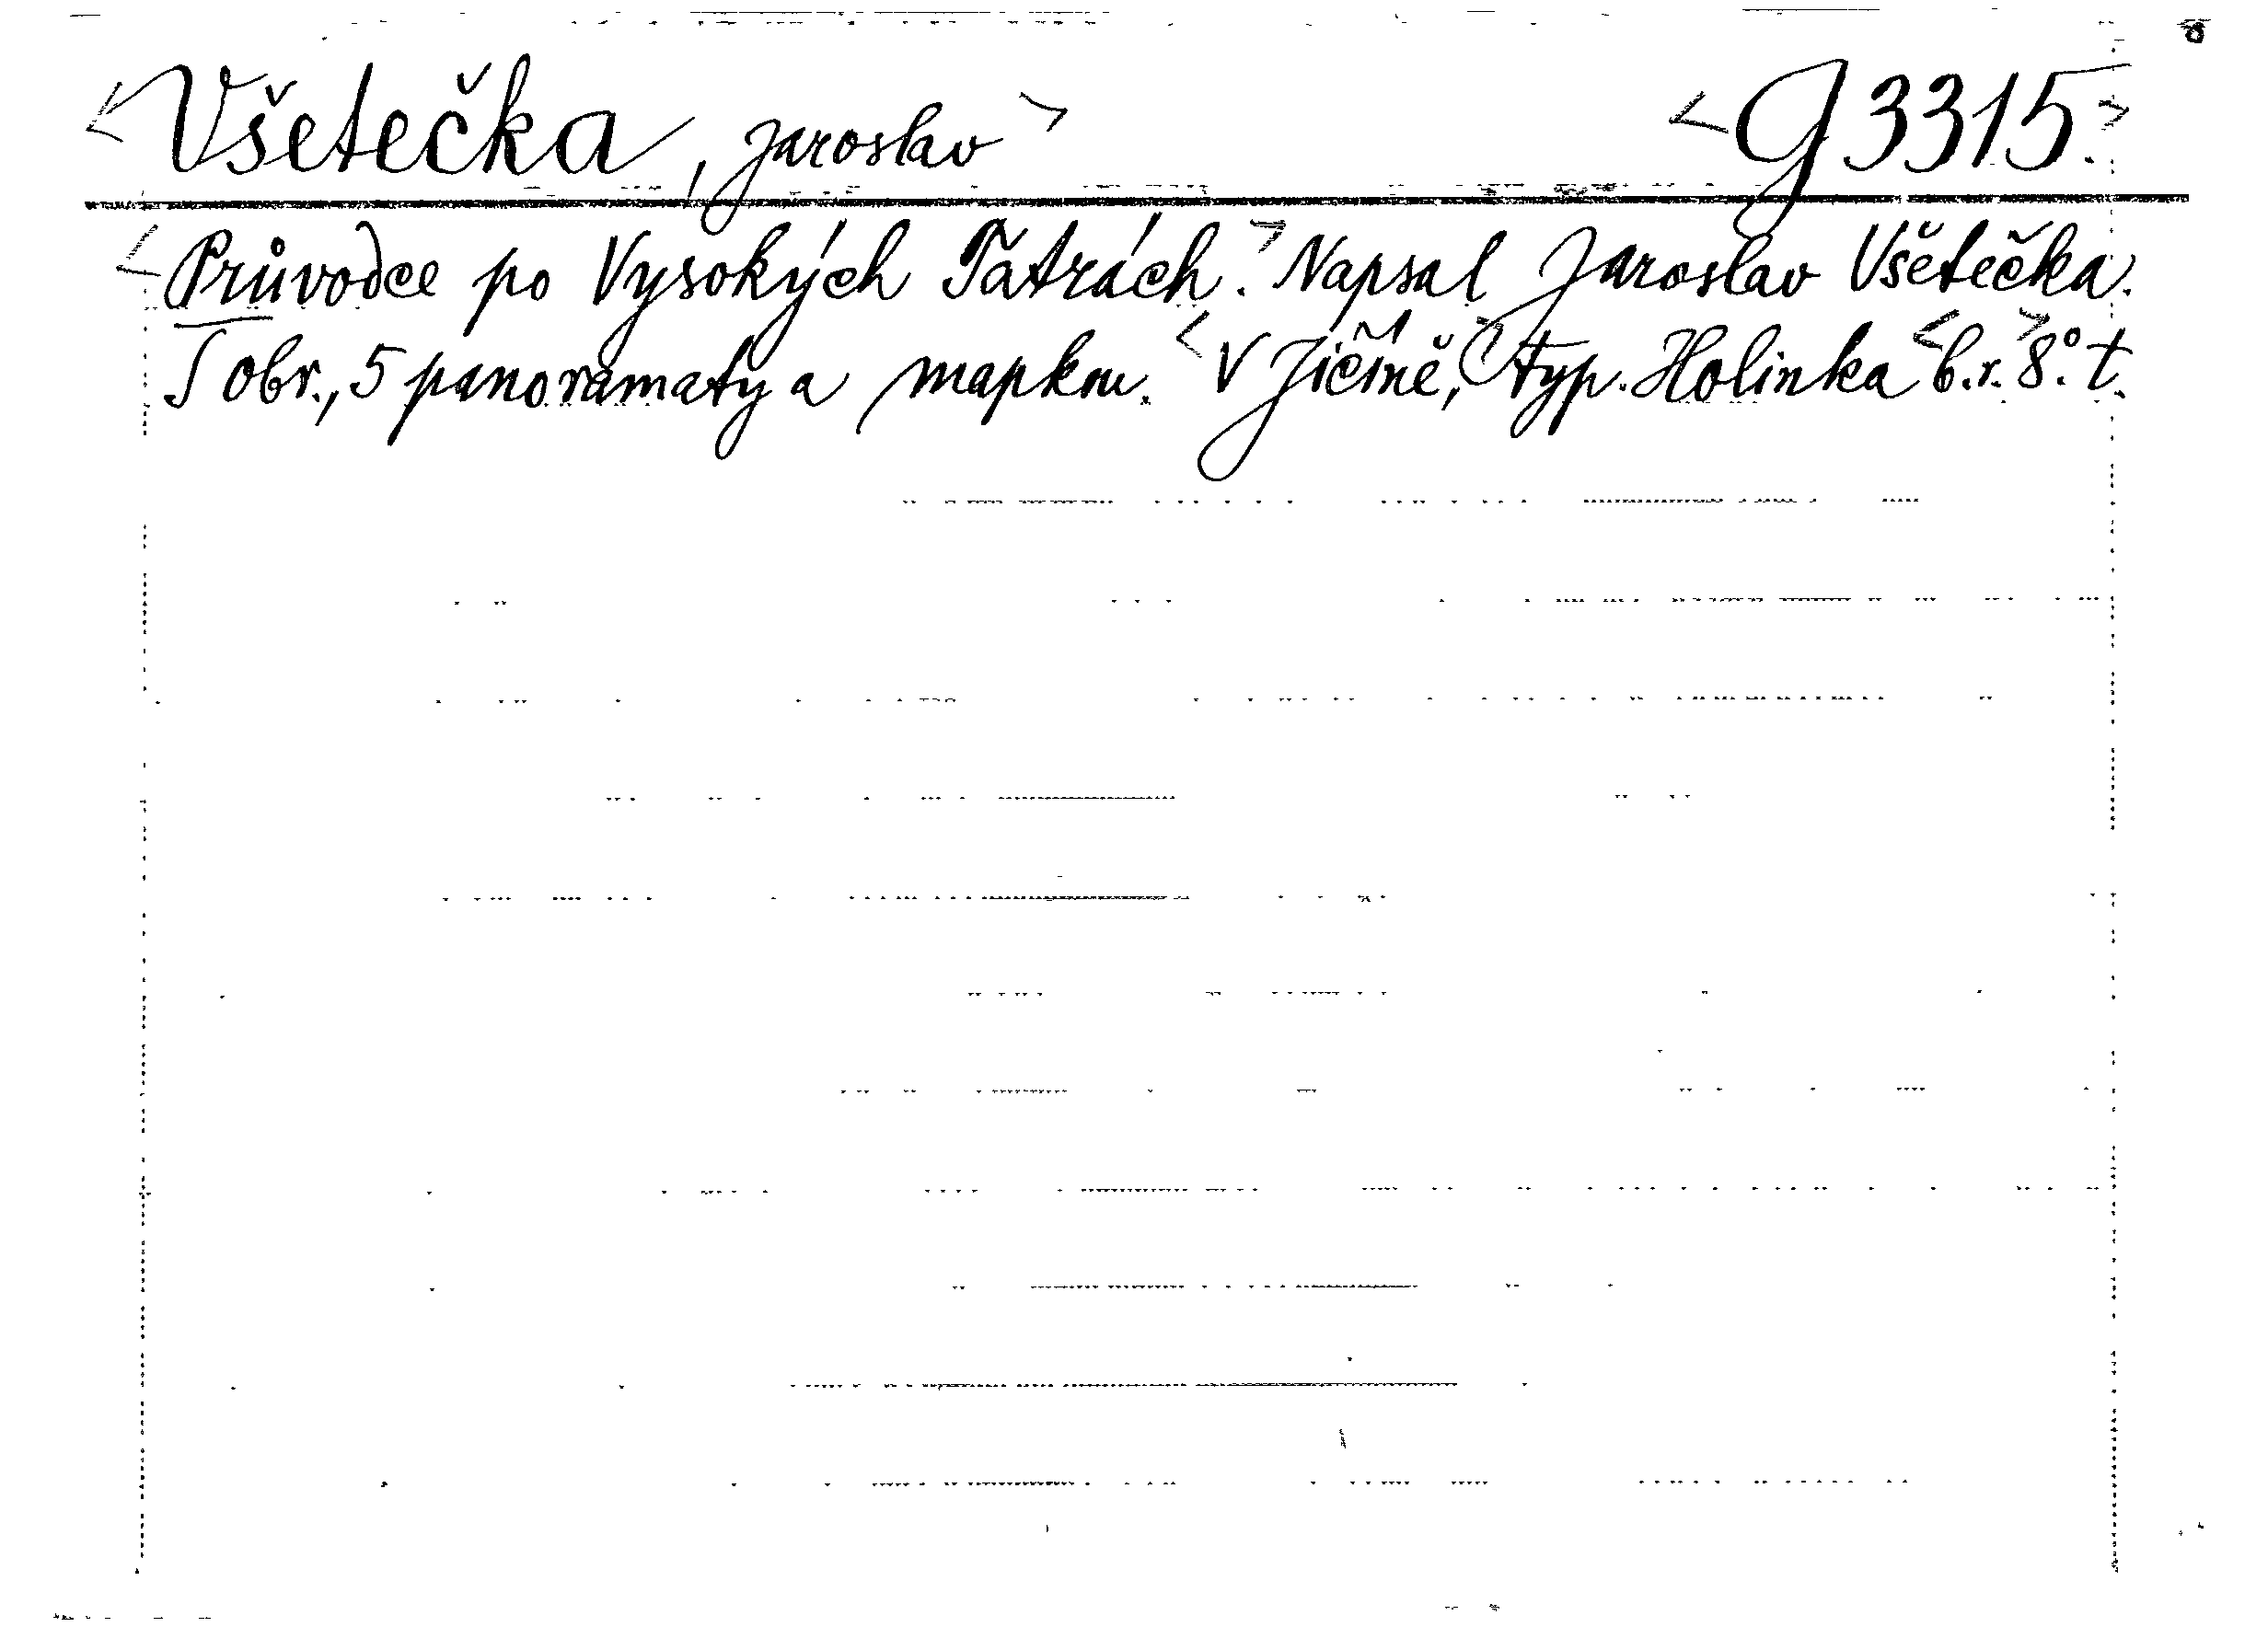 <Všetečka, Jaroslav> <G 3315.>
<Průvodce po Vysokých Tatrách.> Napsal Jaroslav Všetečka.
S obr., 5 panoramaty a mapkou. <V Jičíně,> typ. Holinka <b.r.> 8°. t.